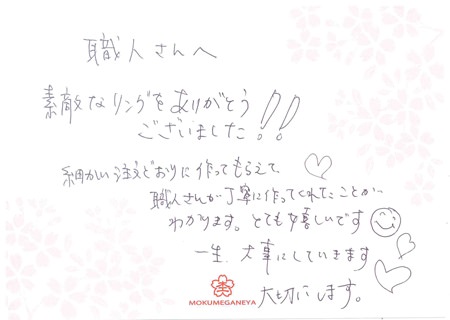 職人さんへ
素敵なリングをありがとう
ございました!!
細かい注文どおりに作ってもらえて、
職人さんが丁寧に作ってくれたことが
わかります。とても嬉しいです
一生、大事にしていきます
大切にします。
MOKUMEGANEYA